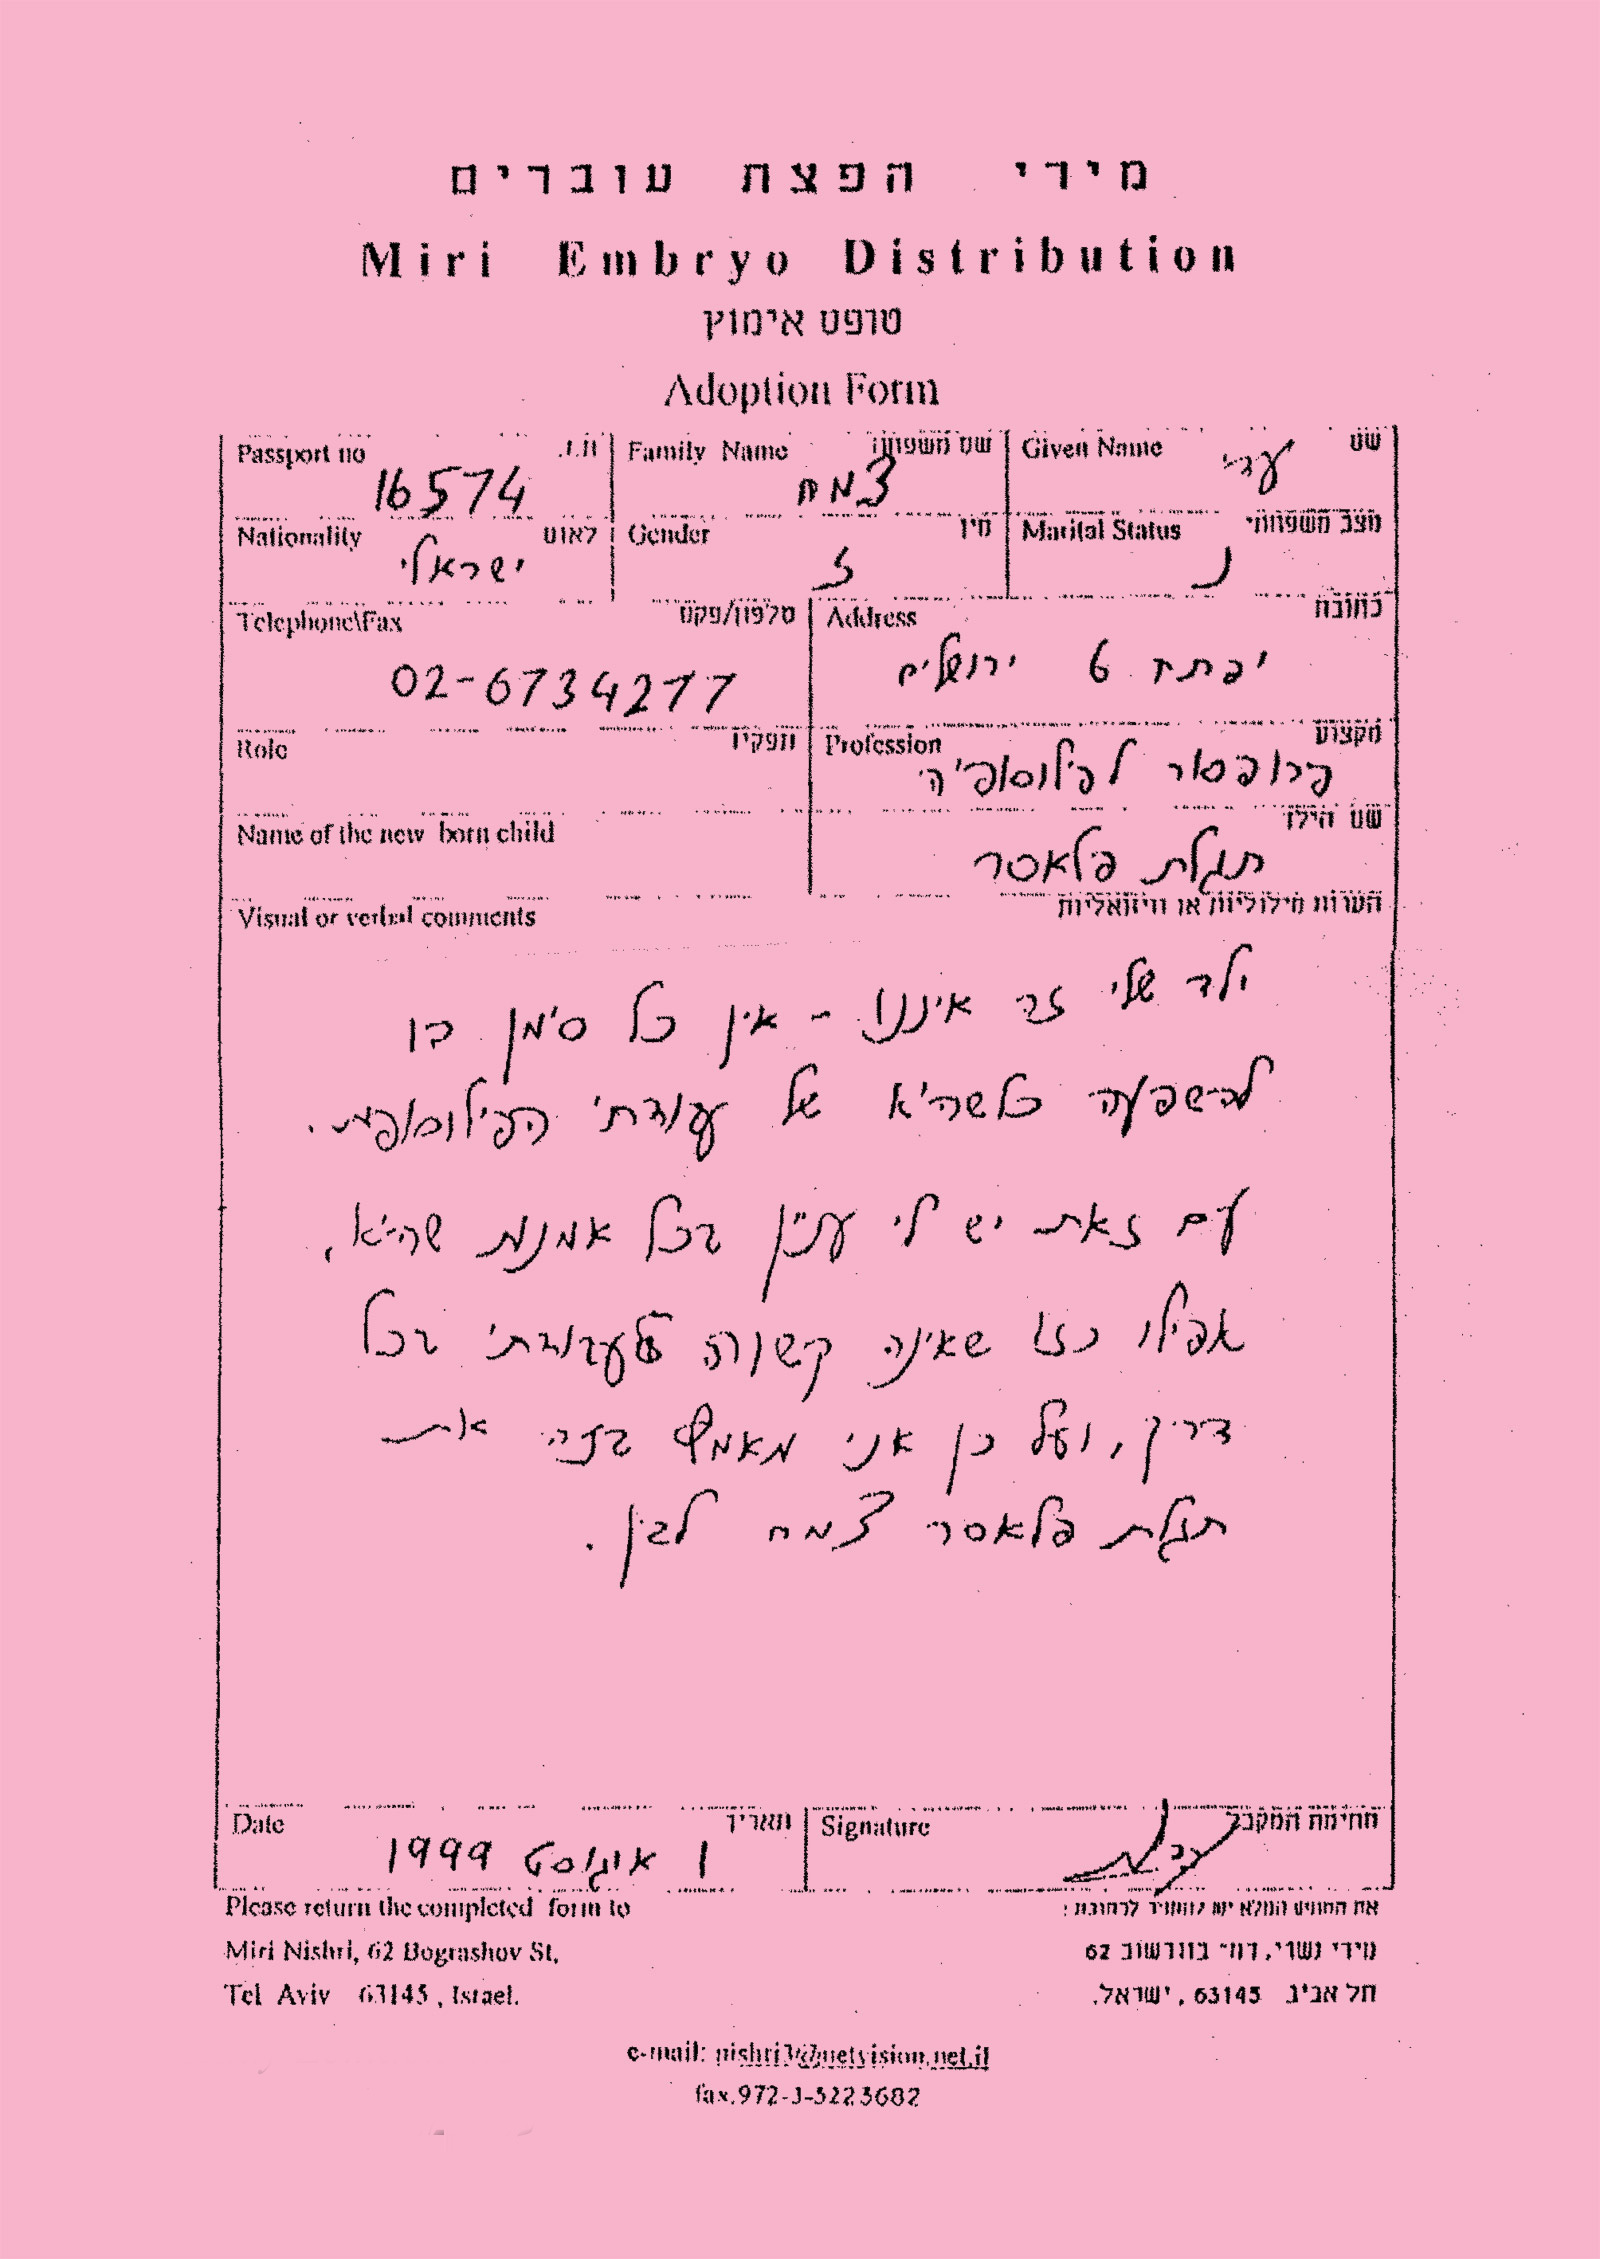 מירי הפצת עוברים
Miri Embryo Distribution
טופס אימוץ
Adoption Form
Passport no ת.ז. Family Name שם משפחה Given Name שם
16574 צמח עדי
Nationality לאום Gender מין Marital Status מצב משפחתי
ישראלי ז נ
Telephone\Fax טלפון/פקס Address כתובת
02-6734277 יפתח 6 ירושלים
Role תפקיד Profession מקצוע
פרופסור לפילוסופיה
Name of the new born child שם הילד
תגלת פלאסר
Visual or verbal comments הערות מילוליות או וויזואליות
ילד שלי זה איננו - אין כל סימן בו
להשפעה כלשהיא של עבודתי הפילוסופית.
עם זאת יש לי עניין בכל אמנות שהיא,
אפילו כזו שאינה קשורה לעבודתי בכל
דרך, ועל כן אני מאמץ בזה את
תגלת פלאסר צמח לבין.
Date תאריך Signature חתימת המקבל
1 אוגוסט 1999
Please return the completed form to את הטופס המלא יש להחזיר לכתובת :
Miri Nishri, 62 Bograshov St, מירי נשרי, רח' בוגרשוב 62
Tel Aviv 63145 , Israel. תל אביב 63145 , ישראל.
e-mail: nishri3@netvision.net.il
fax.972-3-5223682